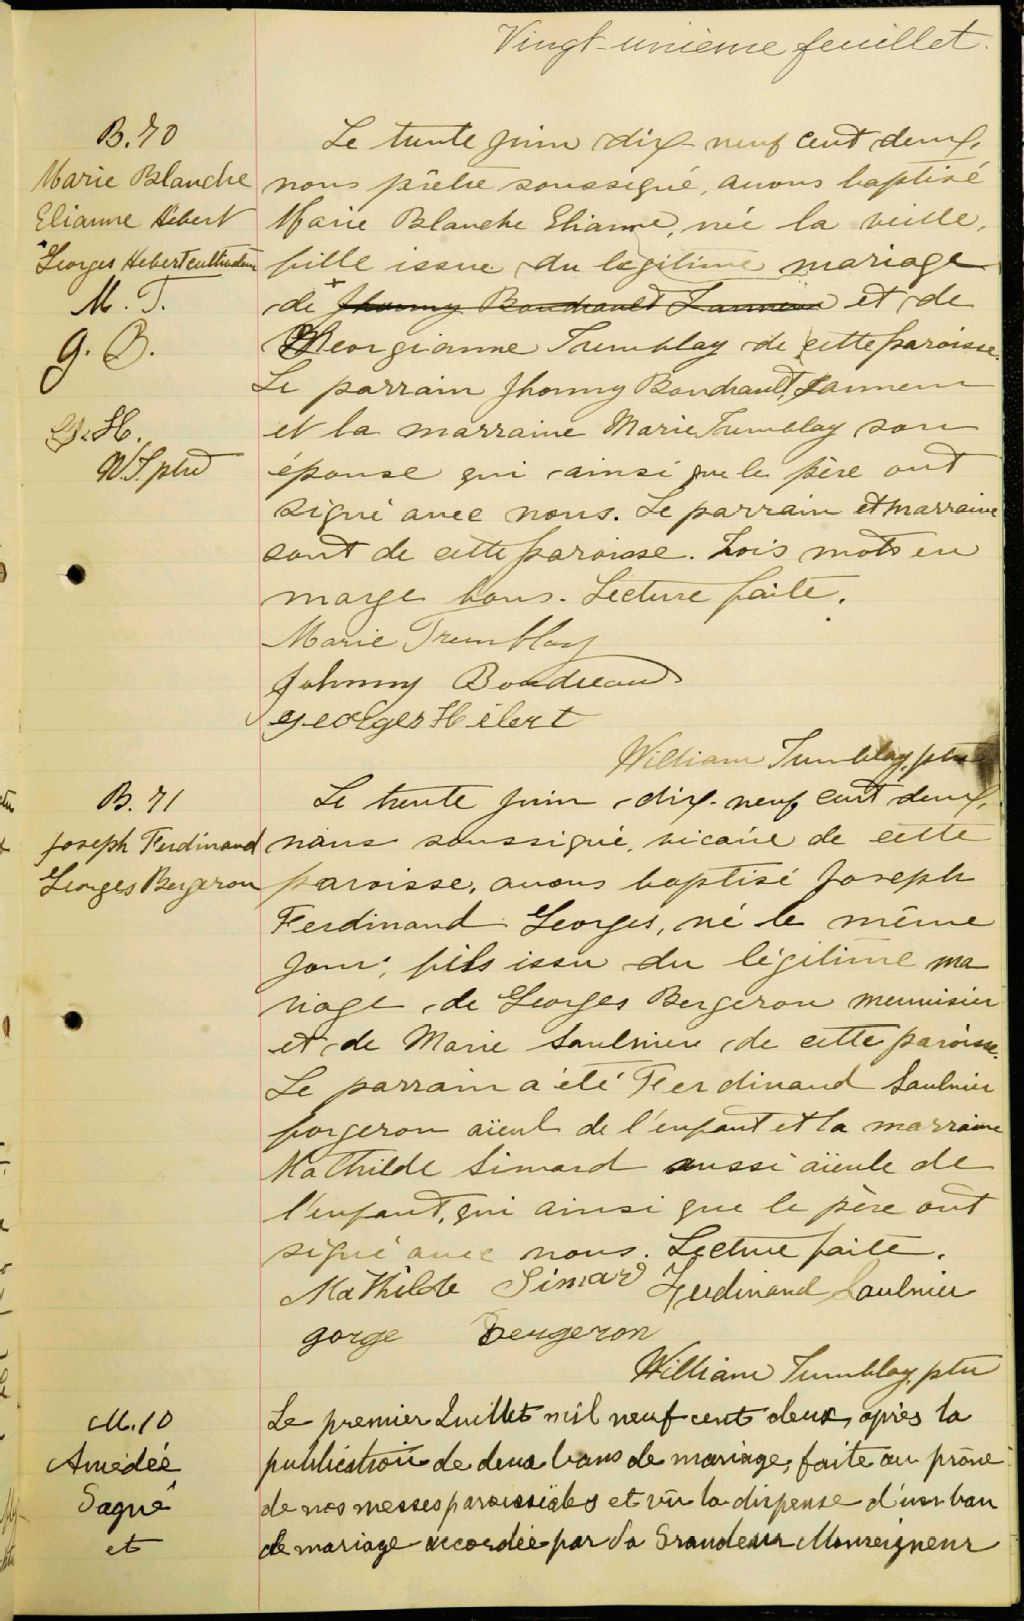 Vingt-unième feuillet.
B. 70
Marie Blanche
Elianne Hébert
Georges Hebert cultivateur
M. T.
G. B.
G. H.
W. T. ptre
Le trente Juin dix-neuf cent deux,
nous prêtre soussigné, avons baptisé
Marie Blanche Elianne, née la veille,
fille issue du légitime mariage
de + Jhonny Boudreault Tanneur et de
Georgianne Tremblay de cette paroisse.
Le parrain Jhonny Boudreault, Tanneur
et la marraine Marie Tremblay son
épouse qui ainsi que le père ont
signé avec nous. Le parrain et marraine
sont de cette paroisse. Trois mots en
marge bons. Lecture faite.
Marie Tremblay
Johnny Boudreau
georges Hébert
William Tremblay, ptre
B. 71
Joseph Ferdinand
Georges Bergeron
Le trente Juin dix-neuf cent deux,
nous soussigné, vicaire de cette
paroisse, avons baptisé Joseph
Ferdinand Georges, né le même
jour, fils issu du légitime ma
riage de Georges Bergeron menuisier
et de Marie Saulnier de cette paroisse.
Le parrain a été Ferdinand Saulnier
forgeron aïeul de l'enfant et la marraine
Mathilde Simard aussi aïeule de
l'enfant, qui ainsi que le père ont
signé avec nous. Lecture faite.
Mathilde Simard Ferdinand Saulnier
gorge Bergeron
William Tremblay, ptre
M. 10
Amédée
Gagné
et
Le premier Juillet mil neuf cent deux, après la
publication de deux bans de mariage, faite au prône
de nos messes paroissiales et vu la dispense d'un ban
de mariage accordée par Sa Grandeur Monseigneur